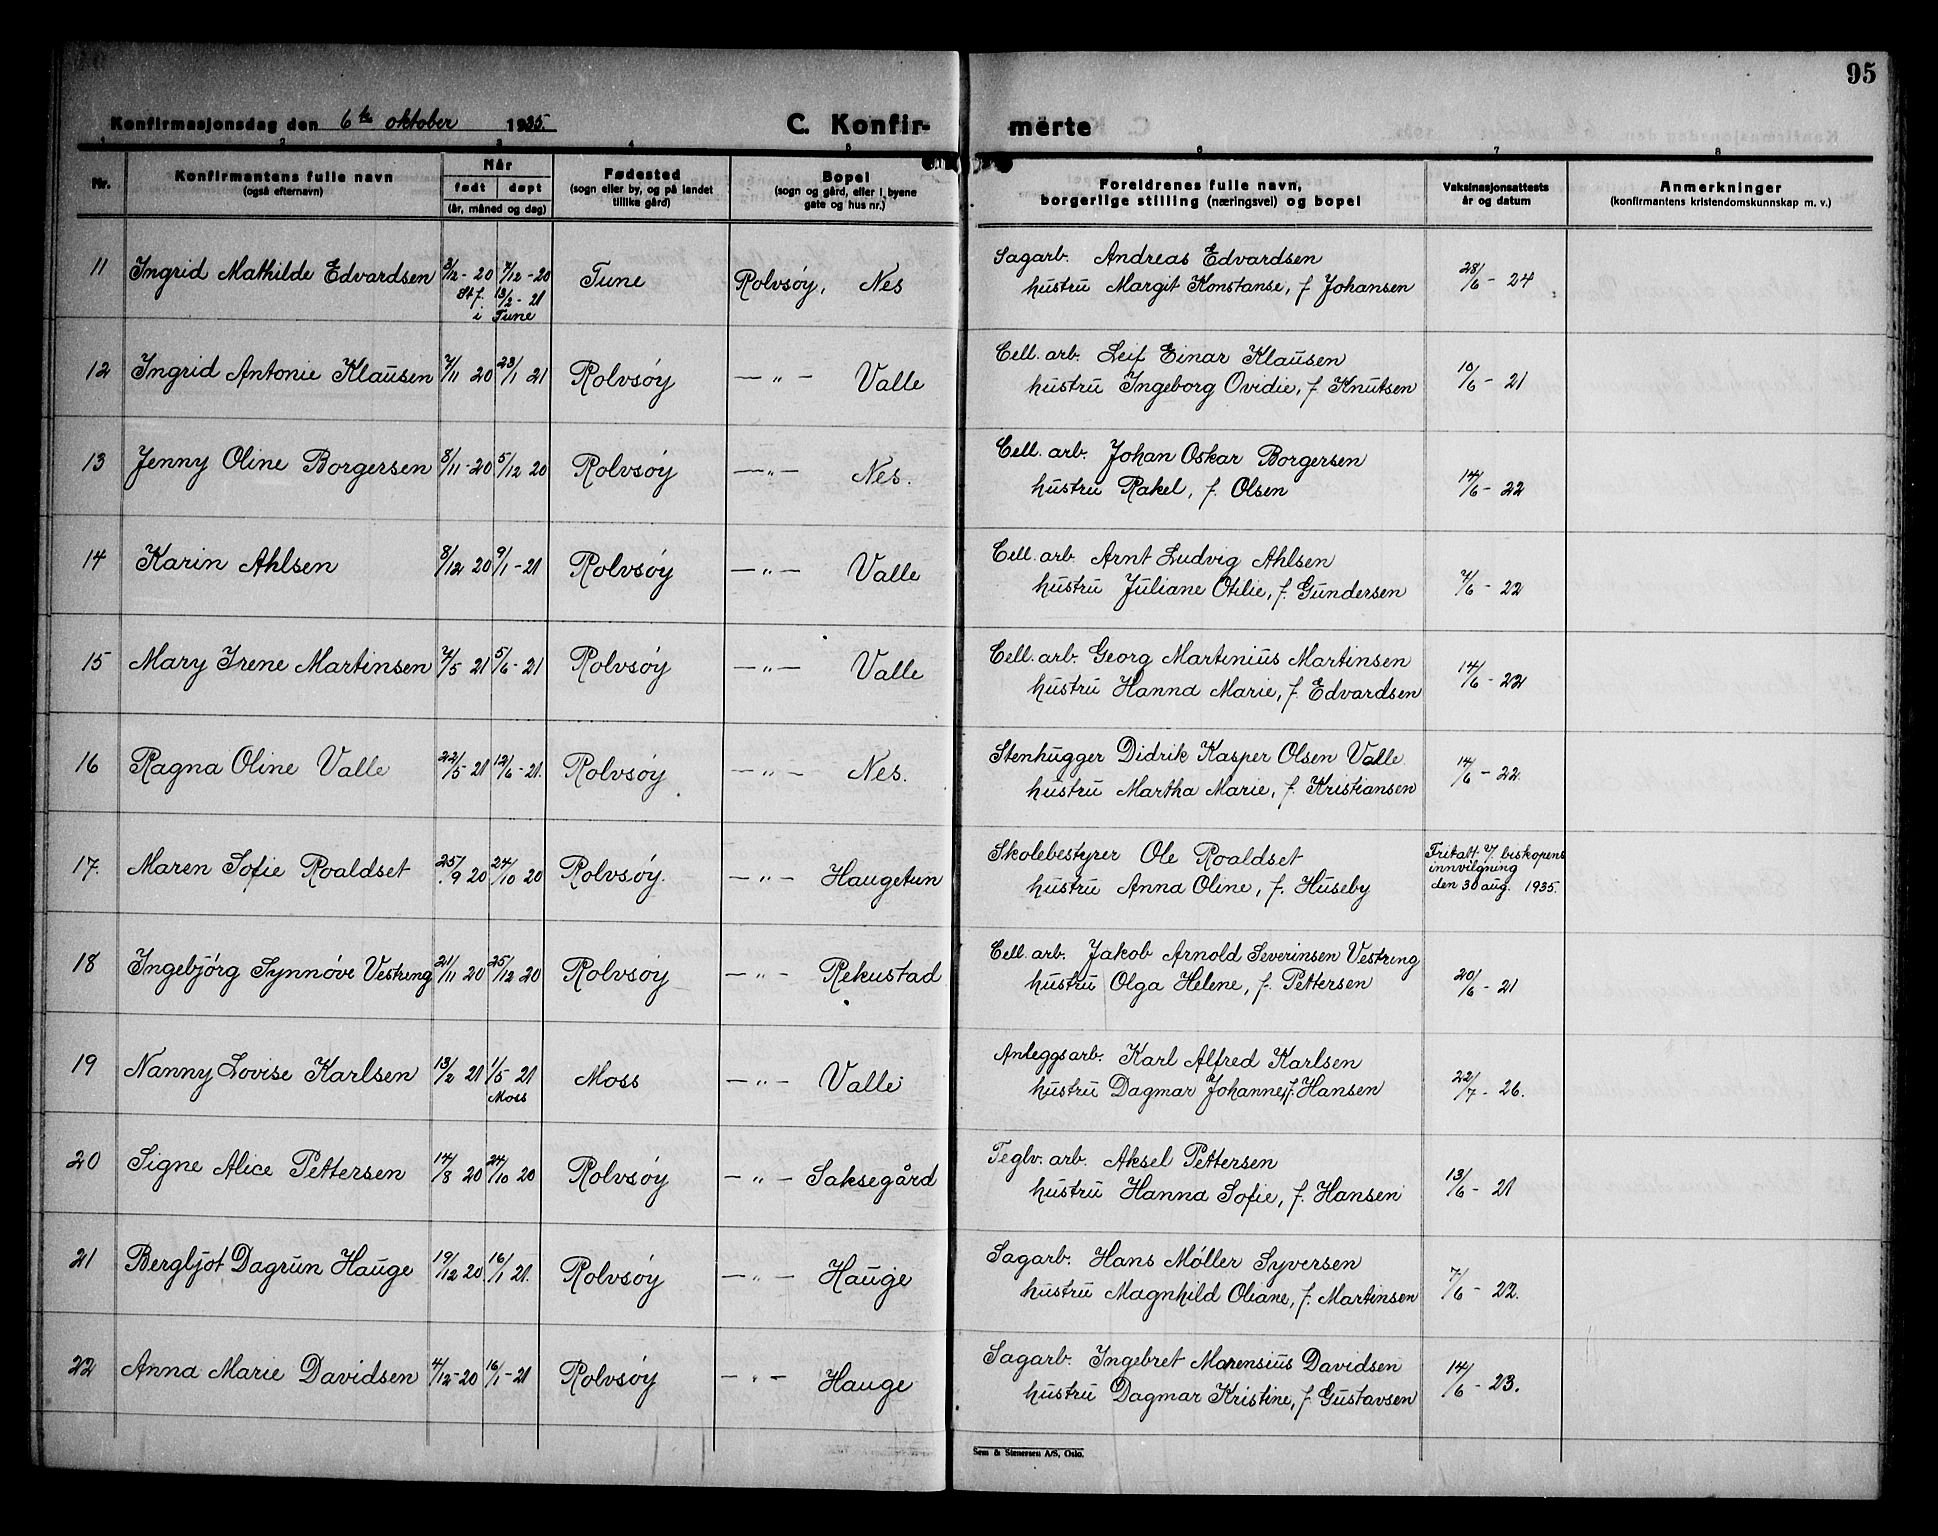 95
Konfirmasjonsdag den 6te oktober 1935.
C. Konfir-
merte
1 2 3 4 5 6 7 8
Nr.
Konfirmantens fulle navn
(også efternavn)
Når
født døpt
(år, måned og dag)
Fødested
(sogn eller by, og på landet
tillike gård)
Bopel
(sogn og gård, eller i byene
gate og hus nr.)
Foreldrenes fulle navn,
borgerlige stilling (næringsvei) og bopel
Vaksinasjonsattests
år og datum
Anmerkninger
(konfirmantens kristendomskunnskap m. v.)
11 Ingrid Mathilde Edvardsen 3/12 - 20 7/12 - 20 Tune Rolvsøy, Nes
Stf. 13/2 - 21
i Tune
Sagarb. Andreas Edvardsen
hustru Margit Konstanse, f. Johansen 28/6 - 24
12 Ingrid Antonie Klausen 7/11 20 23/1 21 Rolvsøy — " — Valle
Cell. arb. Leif Einar Klausen
hustru Ingeborg Ovidie, f. Knutsen 10/6 - 21
13 Jenny Oline Borgersen 8/11 - 20 5/12 20 Rolvsøy — " — Nes.
Cell. arb. Johan Oskar Borgersen
hustru Rakel, f. Olsen 14/6 - 22
14 Karin Ahlsen 8/12 20 9/1 - 21 Rolvsøy — " — Valle
Cell. arb. Arnt Ludvig Ahlsen
hustru Juliane Otilie, f. Gundersen 7/6 - 22
15 Mary Irene Martinsen 7/5 21 5/6 - 21 Rolvsøy — " — Valle
Cell. arb. Georg Martinius Martinsen
hustru Hanna Marie, f. Edvardsen 14/6 - 22
16 Ragna Oline Valle 22/5 - 21 12/6 - 21. Rolvsøy — " — Nes.
Stenhugger Didrik Kasper Olsen Valle
hustru Martha Marie, f. Kristiansen 14/6 - 22.
17. Maren Sofie Roaldset 25/9 20 24/10 20 Rolvsøy. — " — Haugetun
Skolebestyrer Ole Roaldset
hustru Anna Oline, f. Huseby
Fritatt v/ biskopens
innvilgning
den 30 aug. 1935.
18 Ingebjørg Synnøve Vestreng 21/11 20 25/12 20 Rolvsøy — " — Rekustad
Cell. arb. Jakob Arnold Severinsen Vestreng
hustru Olga Helene, f. Pettersen 20/6 - 21
19 Nanny Lovise Karlsen 13/2 21 1/5 21 Moss — " — Valle
Moss
Anleggsarb. Karl Alfred Karlsen
hustru Dagmar Johanne, f. Hansen 22/7 - 26.
20 Signe Alice Pettersen 14/8 20 24/10 20 Rolvsøy — " — Saksegård
Teglv. arb. Aksel Pettersen
hustru Hanna Sofie, f. Hansen 13/6 - 21
21 Bergljot Dagrun Hauge 19/12 20 16/1 21. Rolvsøy — " — Hauge
Sagarb. Hans Møller Syversen
hustru Magnhild Oliane, f. Martinsen 7/6 - 22.
22 Anna Marie Davidsen 4/12 - 20 16/1 - 21 Rolvsøy — " — Hauge
Sagarb. Ingebret Marensius Davidsen
hustru Dagmar Kristine, f. Gustavsen 14/6 - 23.
Sem & Stenersen A/S, Oslo.